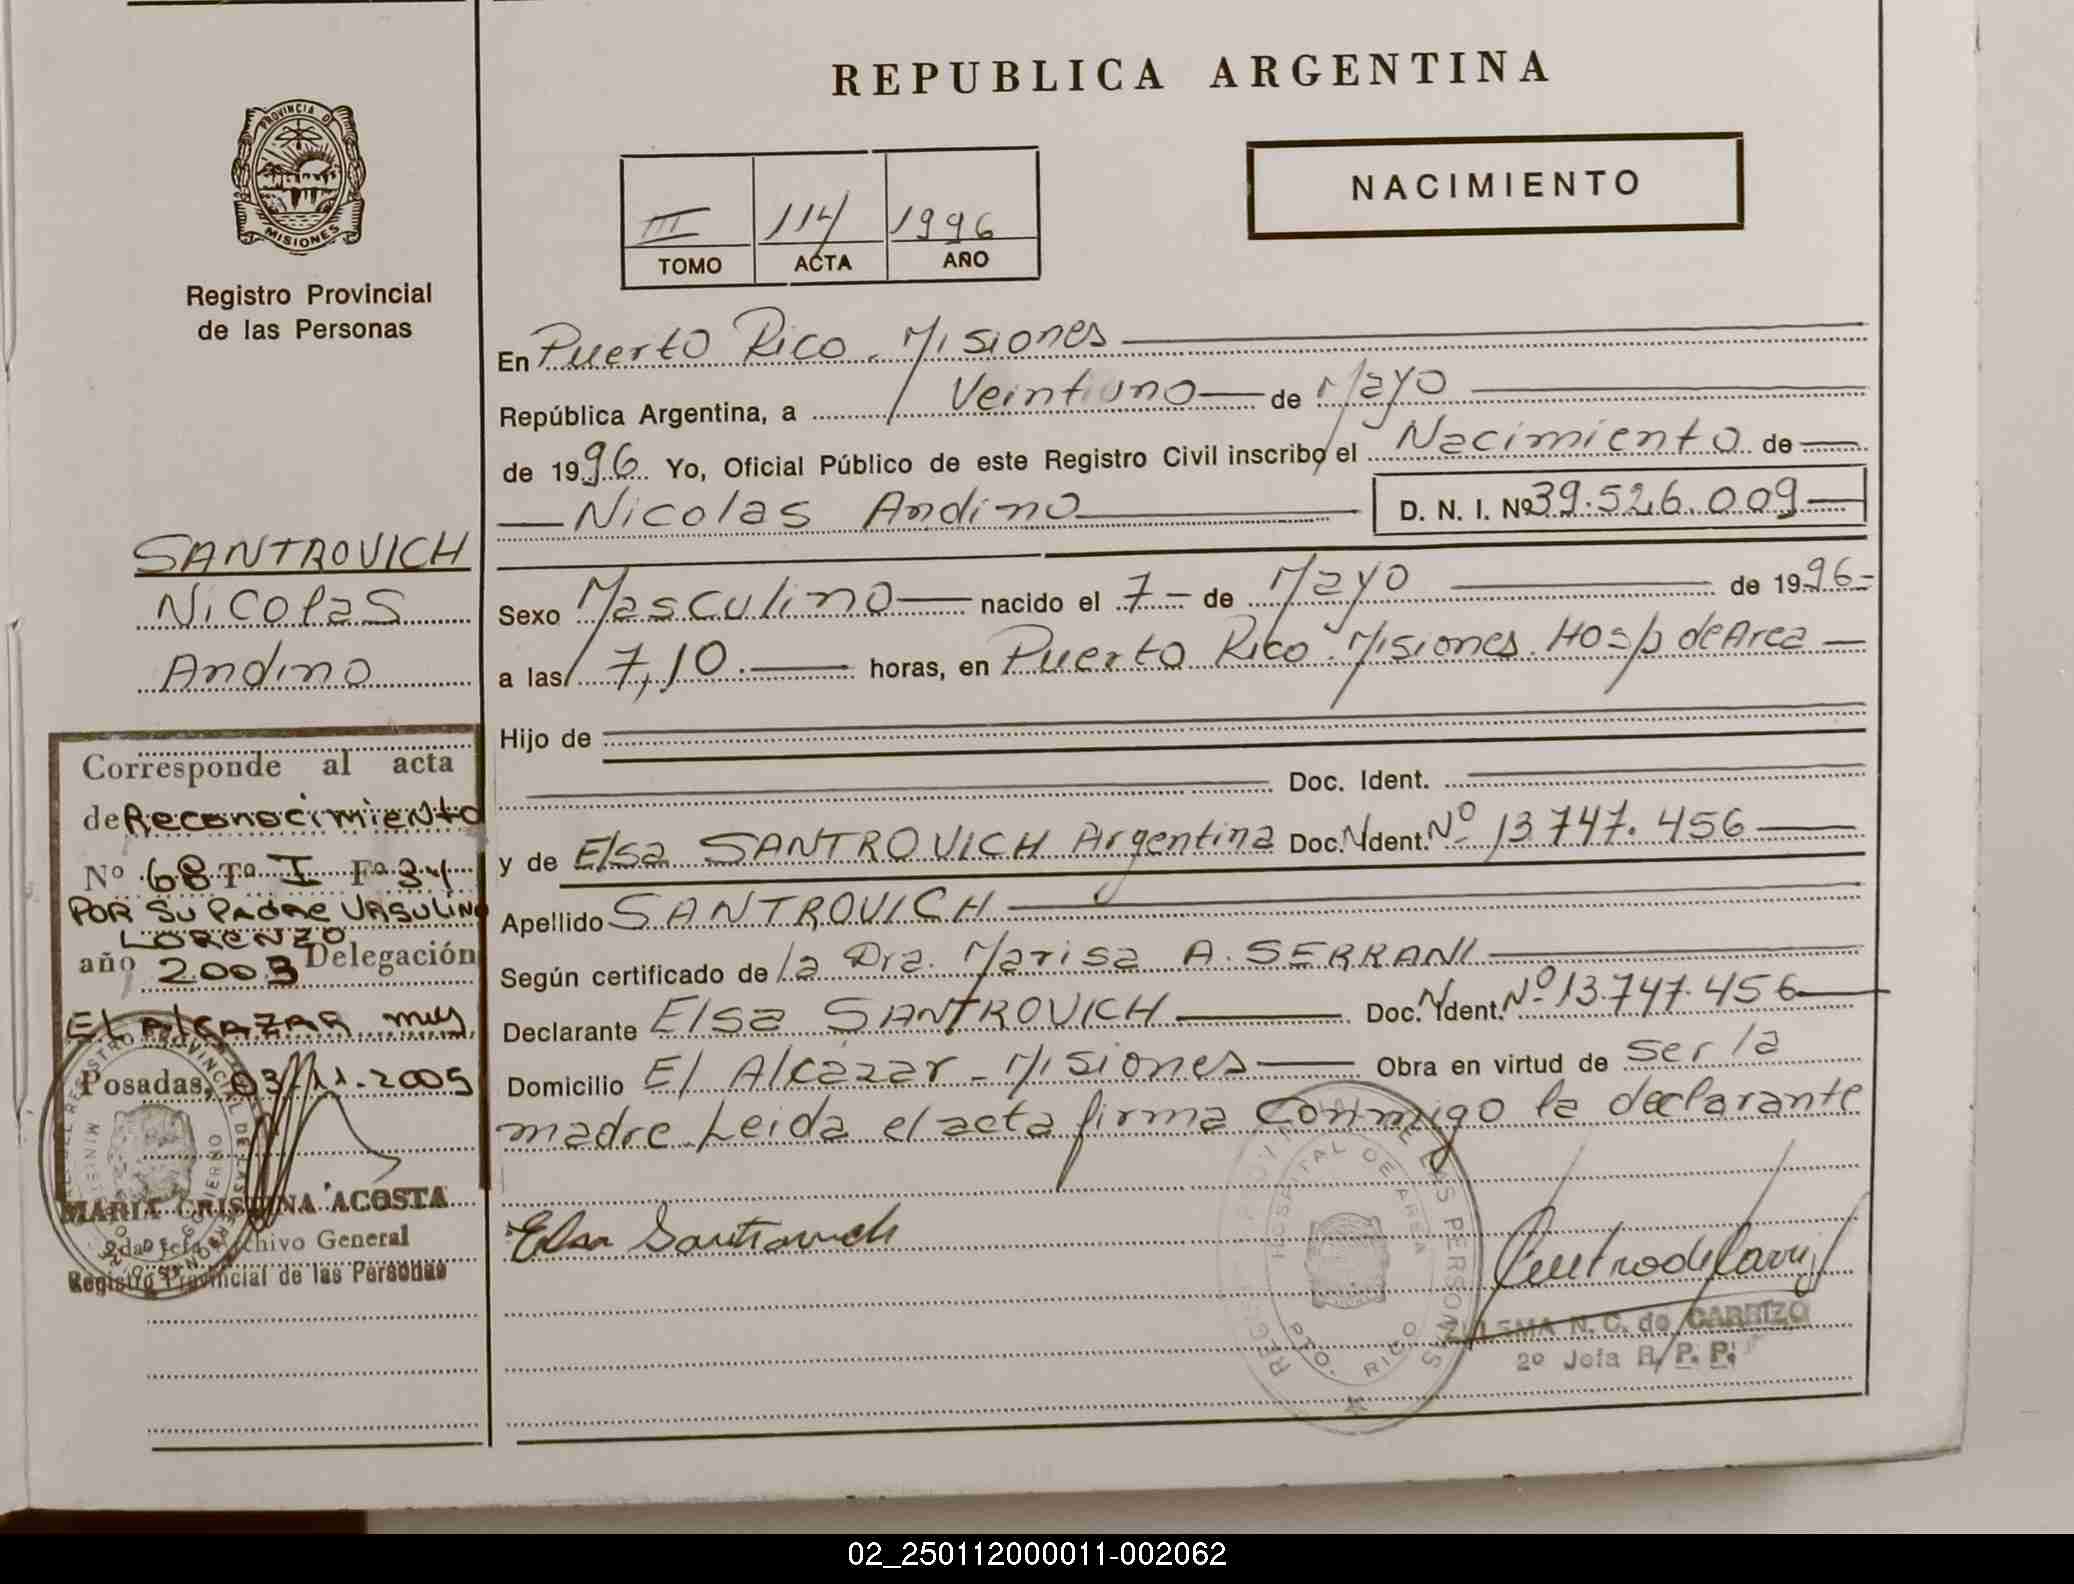 REPUBLICA ARGENTINA
PROVINCIA DE
MISIONES
Registro Provincial
de las Personas
NACIMIENTO
III 114 1996
TOMO ACTA AÑO
En Puerto Rico. Misiones
República Argentina, a Veintiuno de Mayo
de 1996 Yo, Oficial Público de este Registro Civil inscribo el Nacimiento de
Nicolas Andino D. N. I. Nº 39.526.009
Sexo Masculino nacido el 7 - de Mayo de 1996
a las 7,10 horas, en Puerto Rico. Misiones. Hosp de Area
Hijo de
Doc. Ident.
y de Elsa SANTROVICH Argentina Doc. N Ident. Nº 13.747.456
Apellido SANTROVICH
Según certificado de la Dra. Marisa A. SERRANI
Declarante Elsa SANTROVICH Doc. N Ident. Nº 13.747.456
Domicilio El Alcázar - Misiones Obra en virtud de ser la
madre. Leida el acta firma conmigo la declarante
Elsa Santrovich
REGISTRO PROVINCIAL DE LAS PERSONAS
HOSPITAL DE AREA
PTO. RICO
ZULEMA N. C. de CARRIZO
2º Jefa R. P. P.
SANTROVICH
Nicolas
Andino
Corresponde al acta
de Reconocimiento
Nº 68 Tº I Fº 34
POR SU PADRE URSULINO
LORENZO
año 2.003 Delegación
El Alcazar mis
Posadas, 03-11-2005
MARIA CRISTINA ACOSTA
2da Jefa Archivo General
Registro Provincial de las Personas
02_250112000011-002062